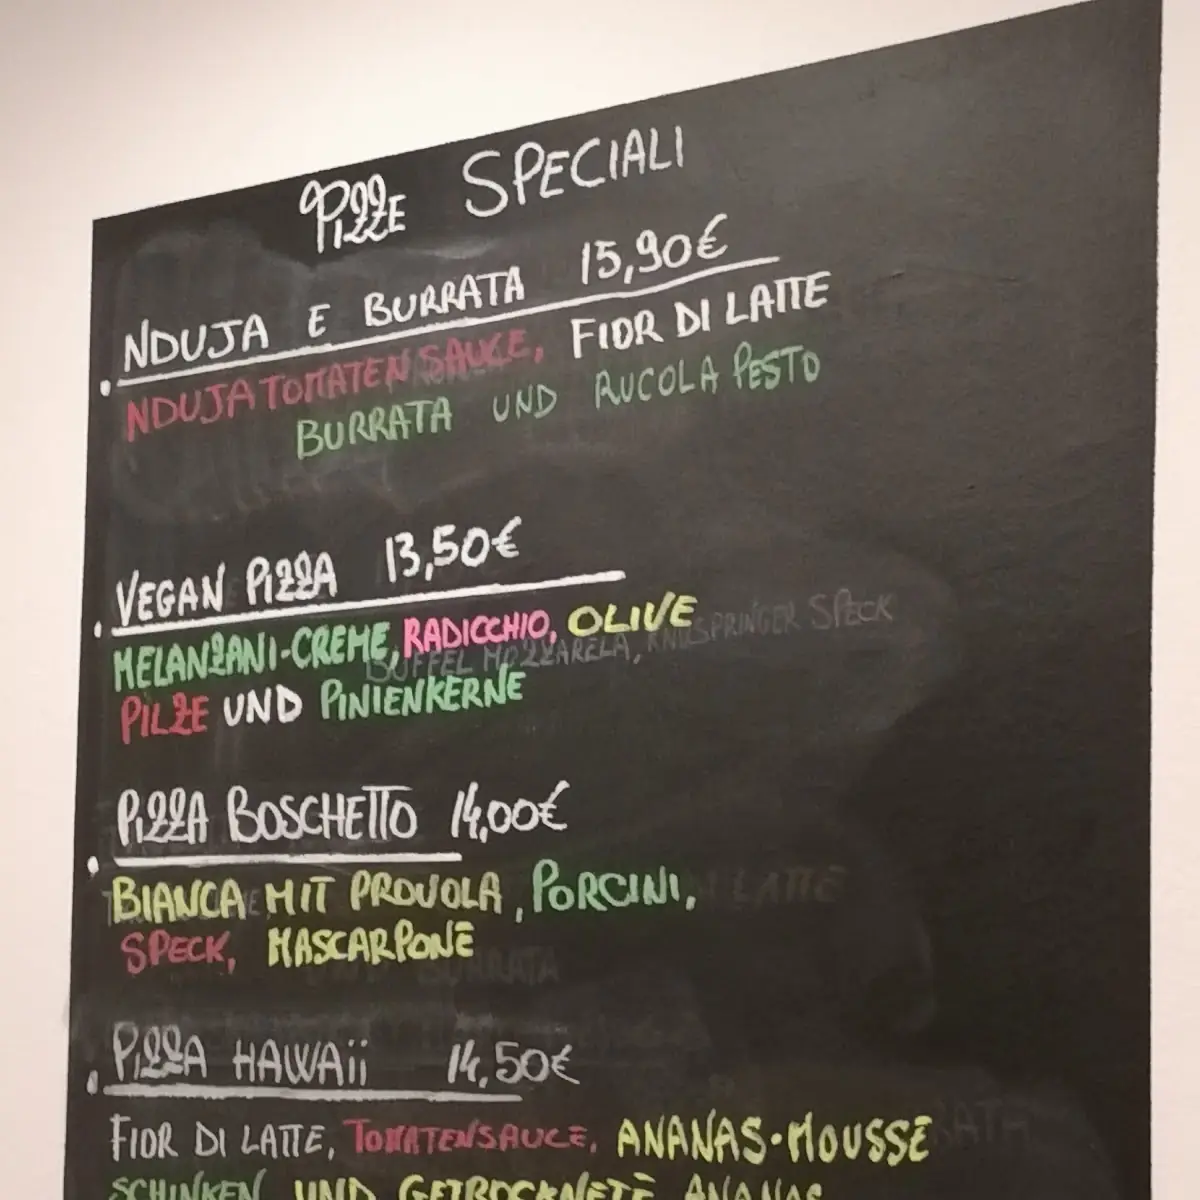 PIZZE SPECIALI
NDUJA E BURRATA 15,90€
NDUJA TOMATEN SAUCE, FIOR DI LATTE
BURRATA UND RUCOLA PESTO
VEGAN PIZZA 13,50€
MELANZANI-CREME, RADICCHIO, OLIVE
BUFFEL MOZZARELA, KNUSPRINGER SPECK
PILZE UND PINIENKERNE
PIZZA BOSCHETTO 14,00€
BIANCA MIT PROVOLA, PORCINI,
LATTE
SPECK, MASCARPONE
BURRATA
PIZZA HAWAII 14,50€
FIOR DI LATTE, TOMATENSAUCE, ANANAS-MOUSSE
SCHINKEN UND GETROCKNETE ANANAS